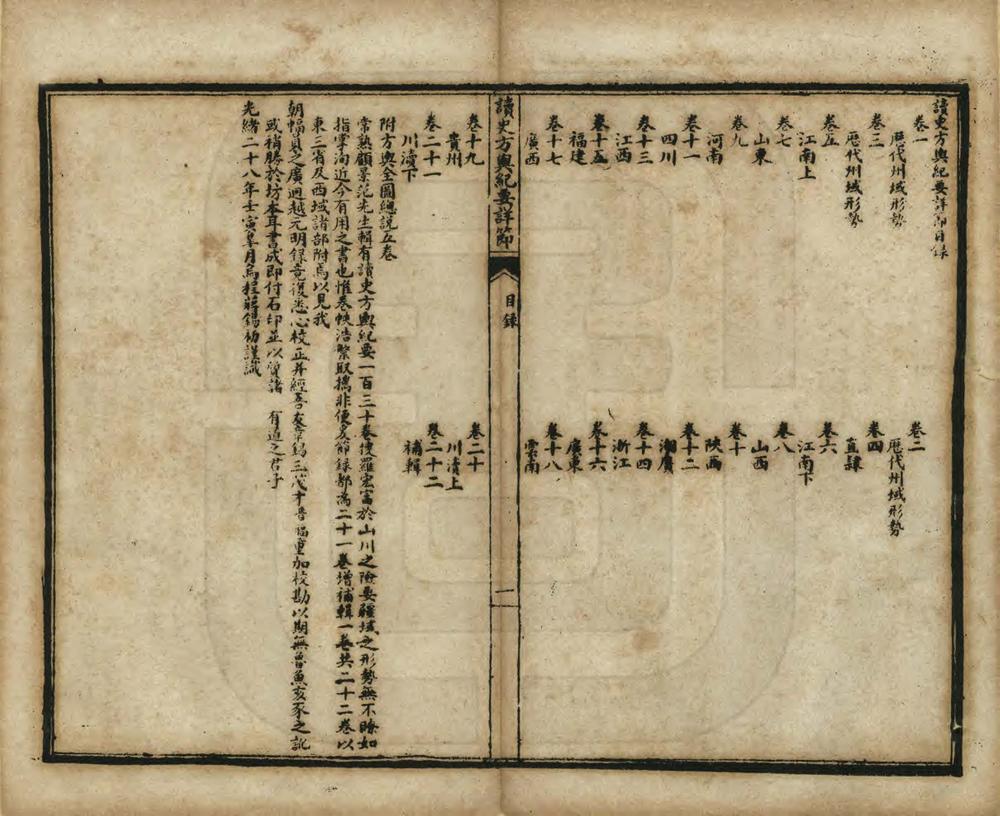 讀史方輿紀要詳節目錄
卷一
歷代州域形勢
卷二
歷代州域形勢
卷三
歷代州域形勢
卷四
直隸
卷五
江南上
卷六
江南下
卷七
山東
卷八
山西
卷九
河南
卷十
陝西
卷十一
四川
卷十二
湖廣
卷十三
江西
卷十四
浙江
卷十五
福建
卷十六
廣東
卷十七
廣西
卷十八
雲南
讀史方輿紀要詳節
目錄
一
卷十九
貴州
卷二十
川瀆上
卷二十一
川瀆下
卷二十二
補輯
附方輿全圖總說五卷
常熟顧景范先生輯有讀史方輿紀要一百三十卷搜羅宏富於山川之險要疆域之形勢無不瞭如
指掌洵近今有用之書也惟卷帙浩繁取攜非便爰節錄都為二十一卷增補輯一卷共二十二卷以
東三省及西域諸部附焉以見我
朝幅員之廣迥越元明錄竟復悉心校正并經吾友章錫三茂才晉福重加校勘以期無魯魚亥豕之訛
或稍勝於坊本耳書成即付石印並以質諸 有道之君子
光緒二十八年壬寅皋月烏程莊錫礽謹識